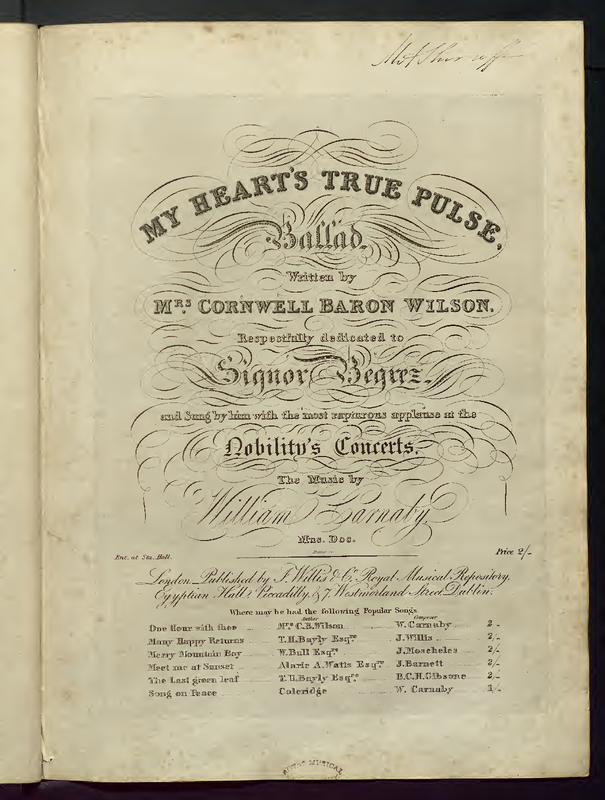 MY HEART'S TRUE PULSE,
Ballad.
Written by
MRS. CORNWELL BARON WILSON.
Respectfully dedicated to
Signor Begrez.
and Sung by him with the most rapturous applause at the
Nobility's Concerts.
The Music by
William Carnaby,
Mus. Doc.
Ent. at Sta. Hall.
Price 2/-
London. Published by I. Willis & Co. Royal Musical Repository,
Egyptian Hall, Piccadilly, & 7, Westmorland Street, Dublin.
Where may be had the following Popular Songs
Author Composer
One Hour with thee Mrs. C.B. Wilson W. Carnaby 2 -
Many Happy Returns T.H. Bayly Esqre. J. Willis 2/-
Merry Mountain Boy W. Ball Esqre. J. Moscheles 2/-
Meet me at Sunset Alaric A. Watts Esqre. J. Barnett 2/-
The Last green leaf T.H. Bayly Esqre. B.C.H. Gibsone 2/-
Song on Peace Coleridge W. Carnaby 1/-
MUSICAL